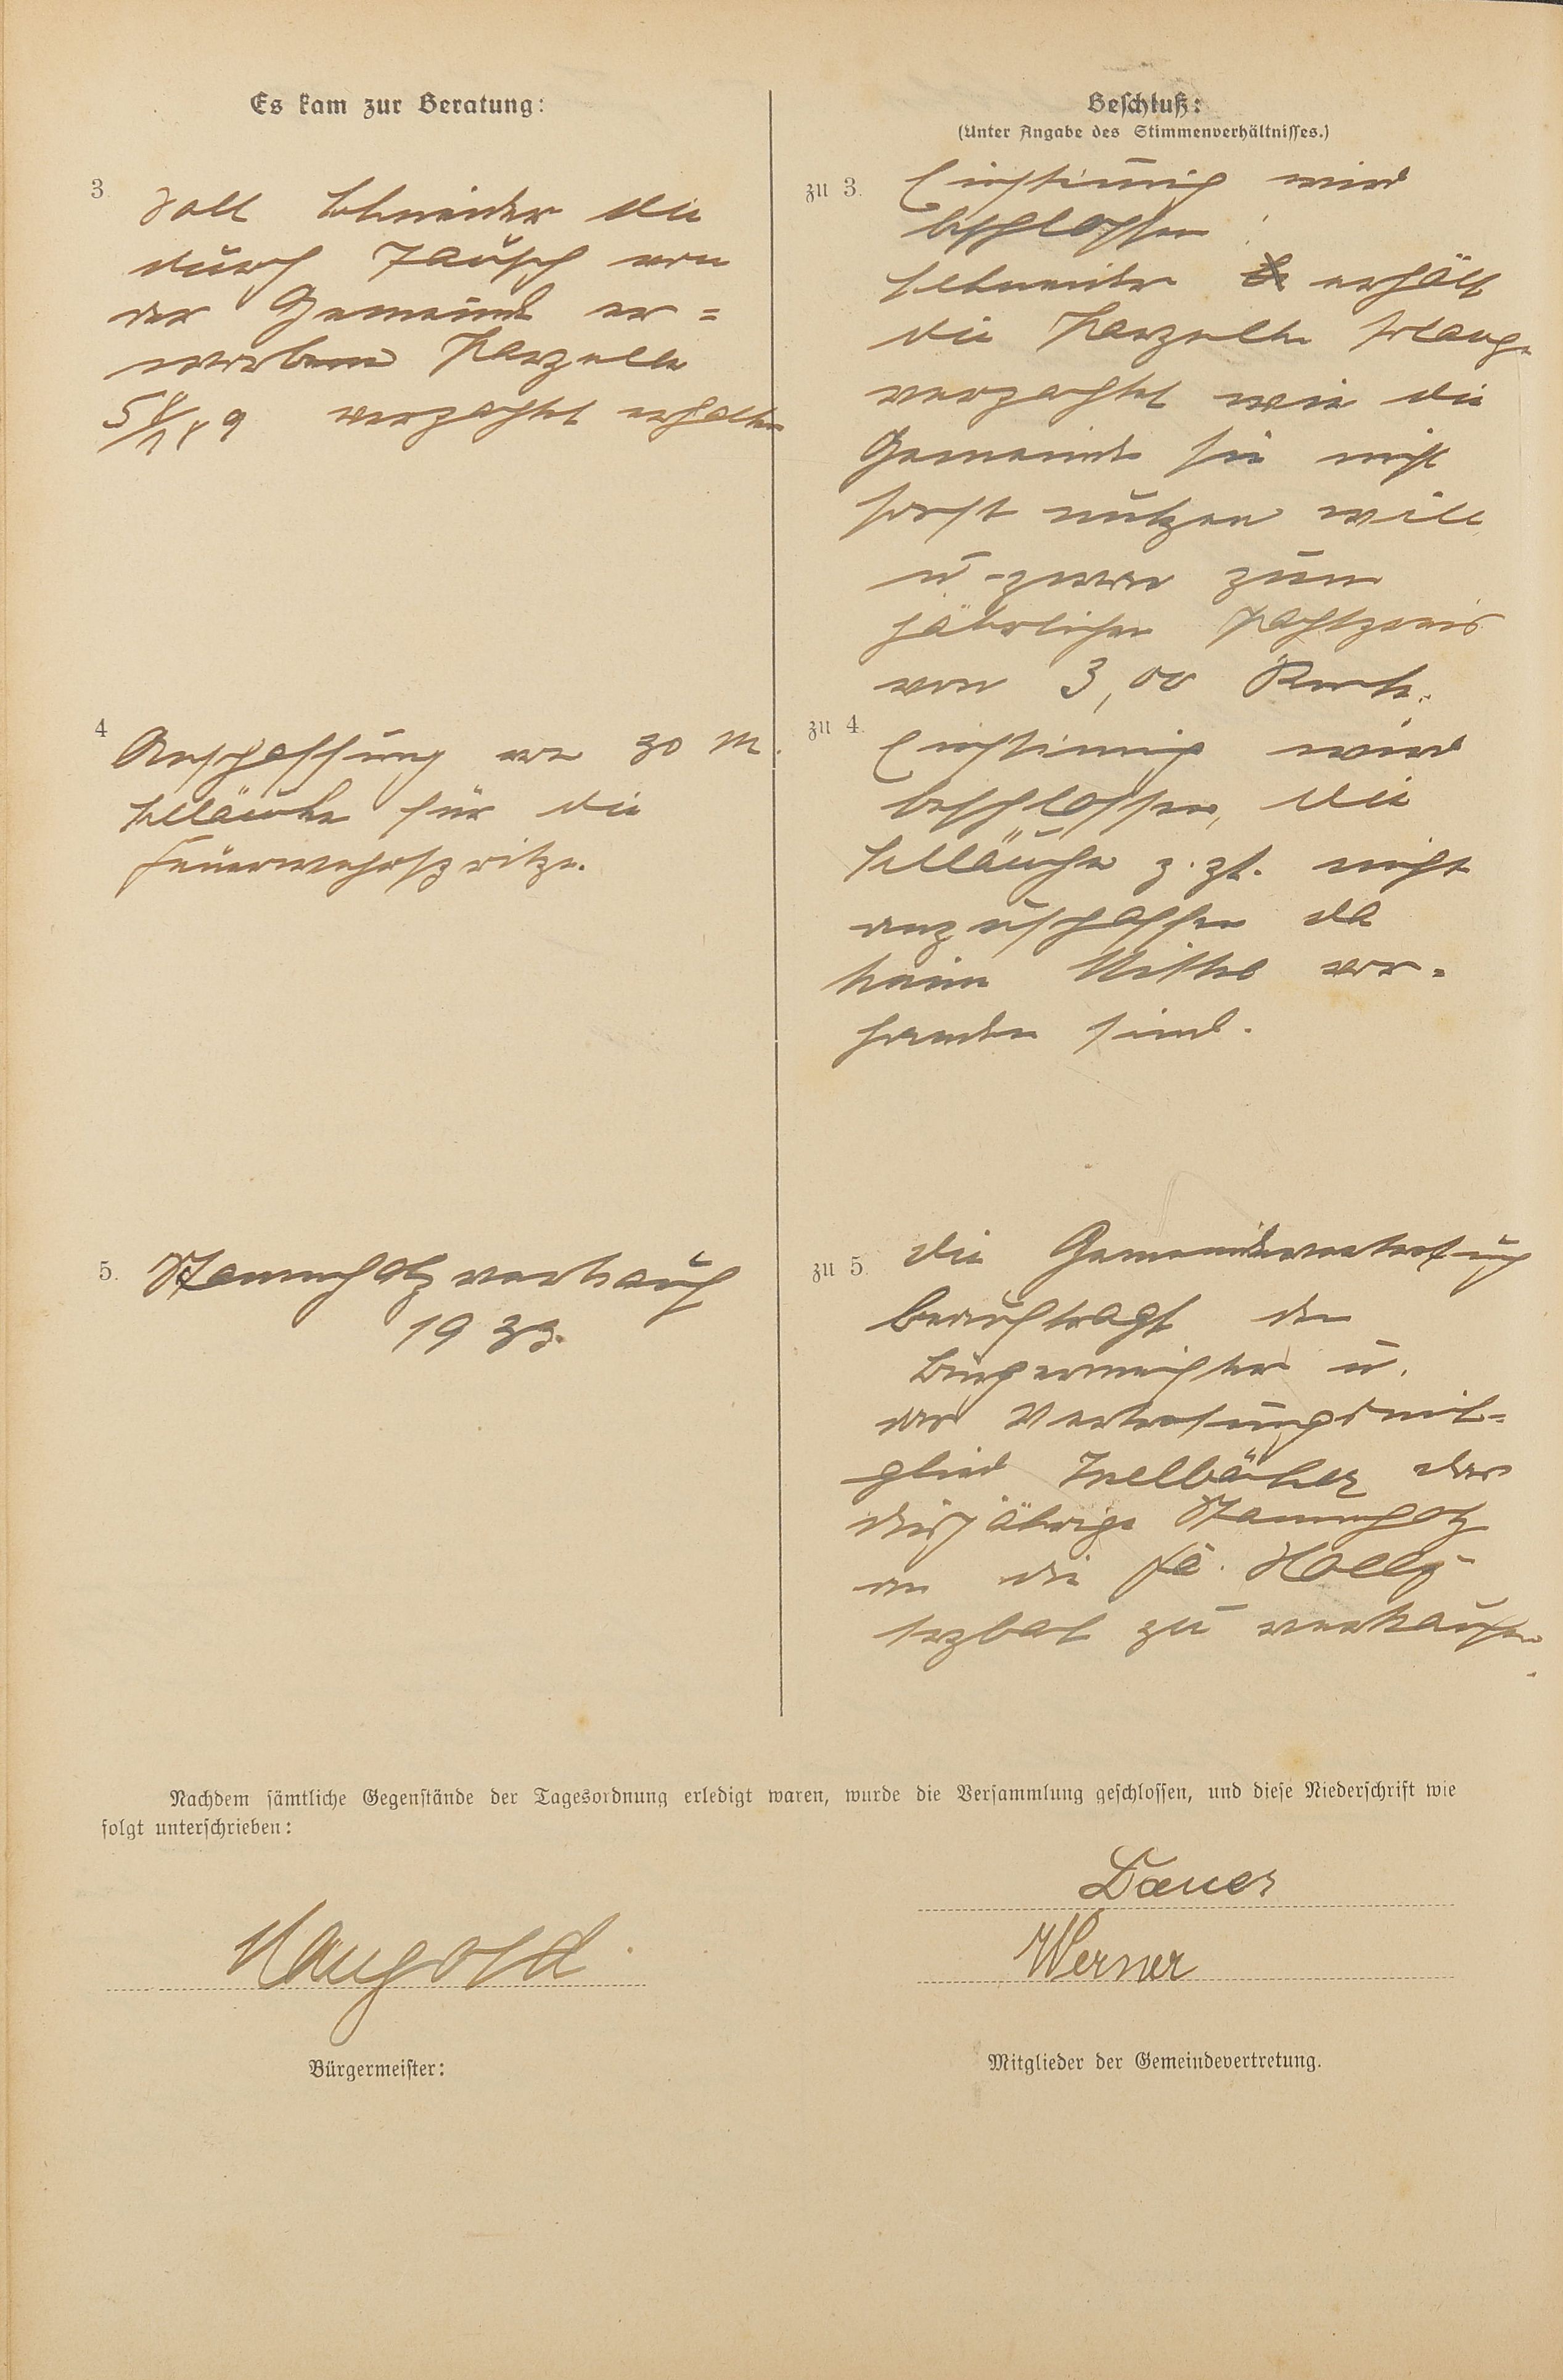 Es kam zur Beratung:
3.
Soll Schneider die
durch Tausch von
der Gemeinde er=
worbene Parzelle
verpachtet erhalten
4
Anschaffung von 30 m.
Schläuche für die
Feuerwehrspritze.
5.
Stammholzverkauf
1933.
Beschluß:
(Unter Angabe des Stimmenverhältnisses.)
zu 3.
Einstimmig wird
beschlossen:
Schneider erhält
die Parzelle solange
verpachtet wie die
Gemeinde sie nicht
sonst nutzen will
u. zwar zum
jährlichen Pachtpreis
von 3,00 Rmk.
zu 4.
Einstimmig wird
beschlossen, die
Schläuche z. Zt. nicht
anzuschaffen da
keine Mittel vor=
handen sind.
zu 5.
die Gemeindevertretung
beauftragt den
Bürgermeister u.
das Vertretungsmit=
glied das
diesjährige Stammholz
an die Fa.
zu verkaufen.
Nachdem sämtliche Gegenstände der Tagesordnung erledigt waren, wurde die Versammlung geschlossen, und diese Niederschrift wie
folgt unterschrieben:
Maugold.
Bürgermeister:
Werner
Mitglieder der Gemeindevertretung.